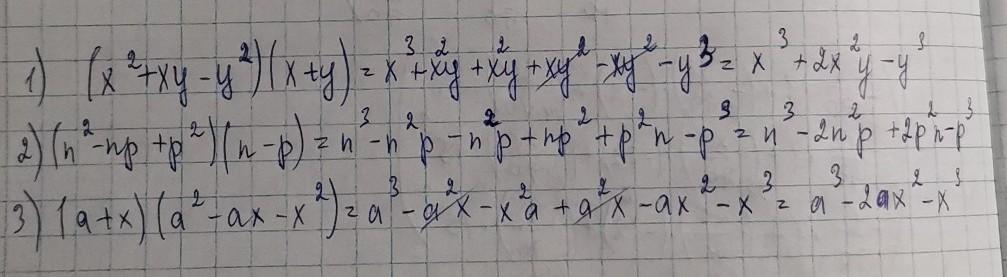 1) (x²+xy-y²)(x+y)=x³+x²y+x²y+xy²-xy²-y³=x³+2x²y-y³
2) (n²-np+p²)(n-p)=n³-n²p-n²p+np²+p²n-p³=n³-2n²p+2p²n-p³
3) (a+x)(a²-ax-x²)=a³-a²x-x²a+a²x-ax²-x³=a³-2ax²-x³